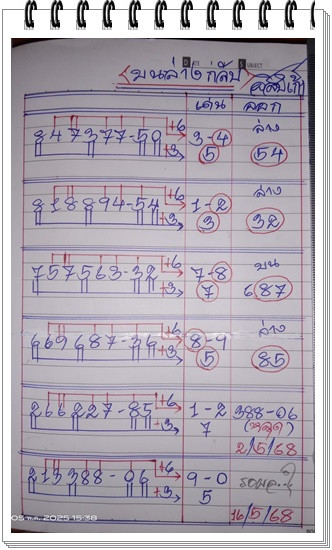 บนล่าง กลับ
เด่น ออก
ล่าง
847377-50 +6 3-4
+3 5 54
ล่าง
818894-54 +6 1-2
+3 3 32
บน
757563-32 +6 7-8
+3 7 687
ล่าง
669687-36 +6 8-9
+3 5 85
266227-85 +6 1-2 388-06
+3 7 (หลุด)
2/5/68
213388-06 +6 9-0
+3 5
16/5/68
05 ต.ค. 2025 15:38